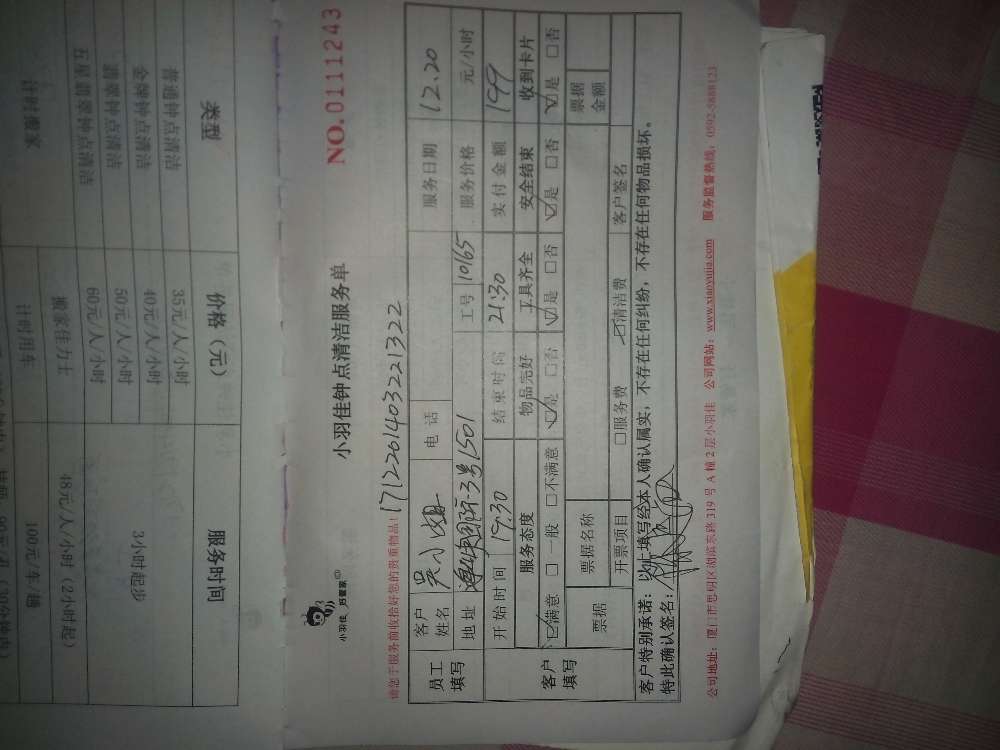 小羽佳钟点清洁服务单
NO.0111243
小羽佳 好管家
请您于服务前收拾好您的贵重物品!
17122614032213​22
员工填写
客户姓名 吴小姐 电话 服务日期 12.20
地址 3号1501 工号 10165 服务价格 元/小时
客户填写
开始时间 19:30 结束时间 21:30 实付金额 199
服务态度 物品完好 工具齐全 安全结束 收到卡片
☑满意 □一般 □不满意 ☑是 □否 ☑是 □否 ☑是 □否 ☑是 □否
票据 票据名称 票据金额
开票项目 □服务费 ☑清洁费 客户签名
客户特别承诺:以上填写经本人确认属实,不存在任何纠纷,不存在任何物品损坏。
特此确认签名:
公司地址:厦门市思明区湖滨东路319号A幢2层小羽佳 公司网站:www.xiaoyujia.com 服务监督热线:0592-5888123
类型 价格(元) 服务时间
普通钟点清洁 35元/人/小时
金牌钟点清洁 40元/人/小时 3小时起步
钟点清洁 50元/人/小时
五星 钟点清洁 60元/人/小时
计时搬家 搬家佳力士 48元/人/小时(2小时起)
计时用车 100元/车/趟